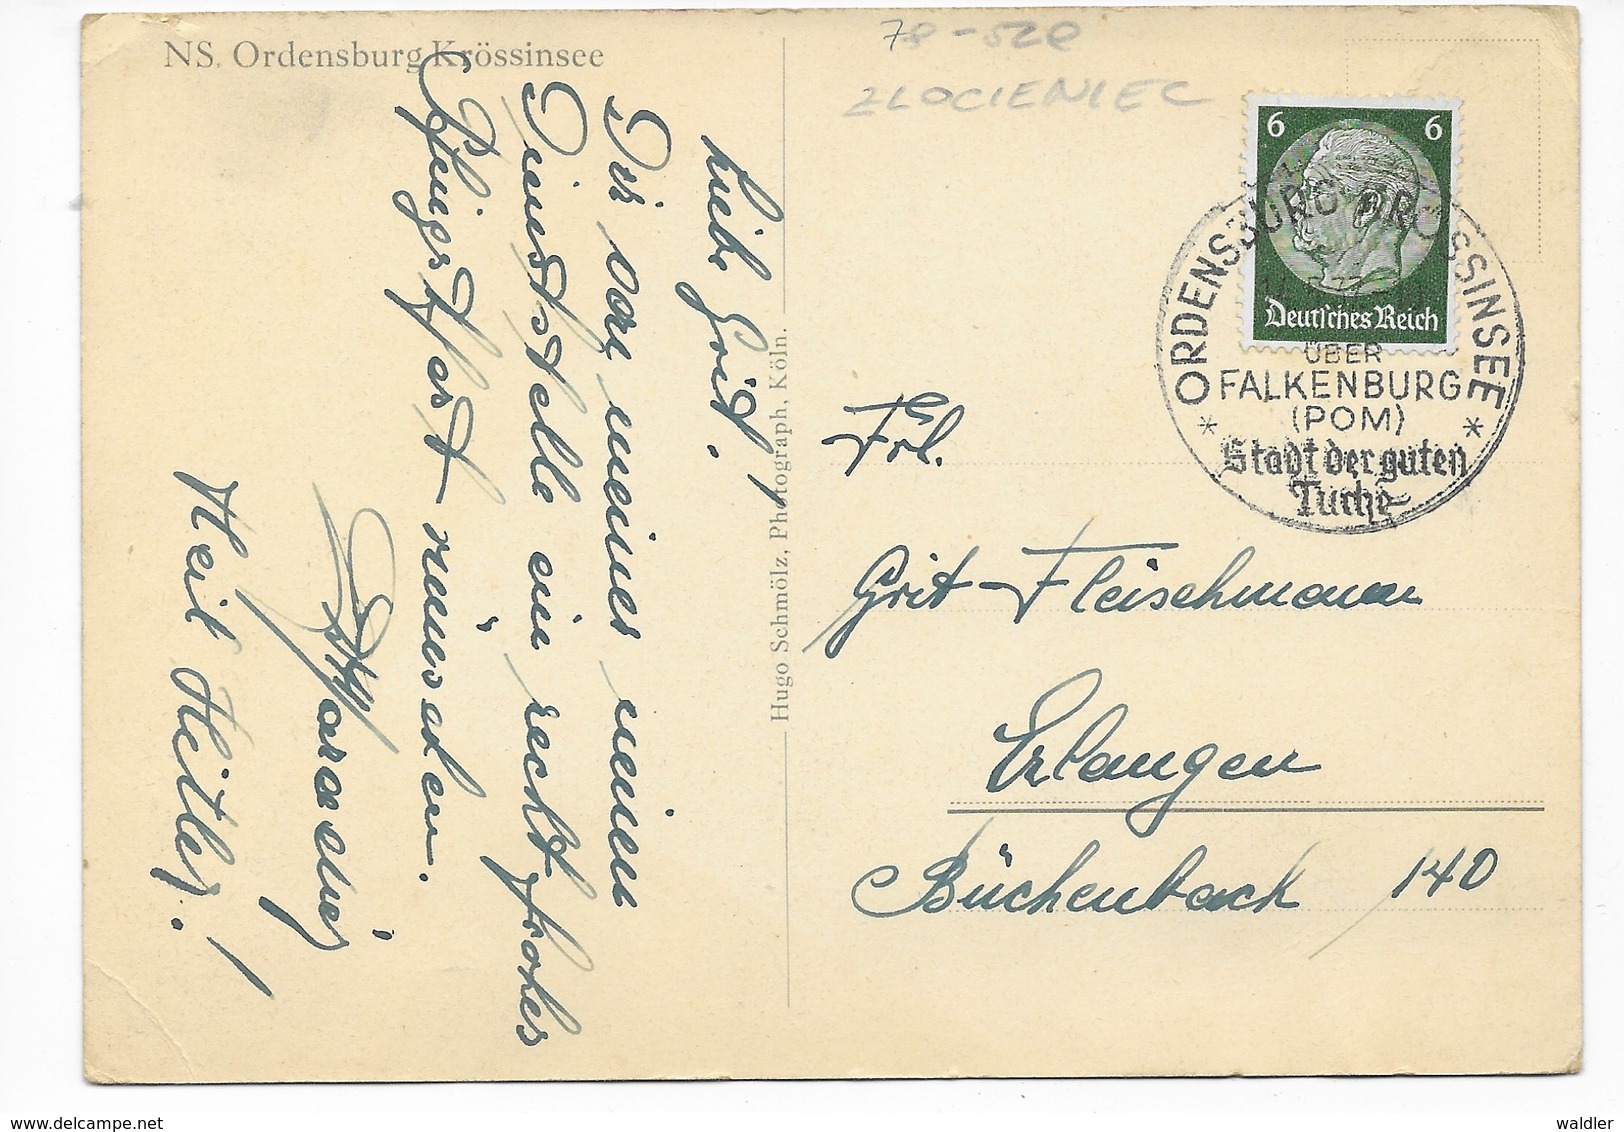 NS. Ordensburg Krössinsee
78-520
ZLOCIENIEC
Liebe Grit!
Dir von meiner neuen
Dienststelle ein recht frohes
Pfingstfest wünschen.
Heil Hitler!
Hugo Schmölz, Photograph, Köln.
6 6
Deutsches Reich
ORDENSBURG CRÖSSINSEE
ÜBER
FALKENBURG
(POM)
* Stadt der guten *
Tuche
Frl.
Grit Fleischmann
Erlangen
Büchenbach 140
www.delcampe.net
waldler